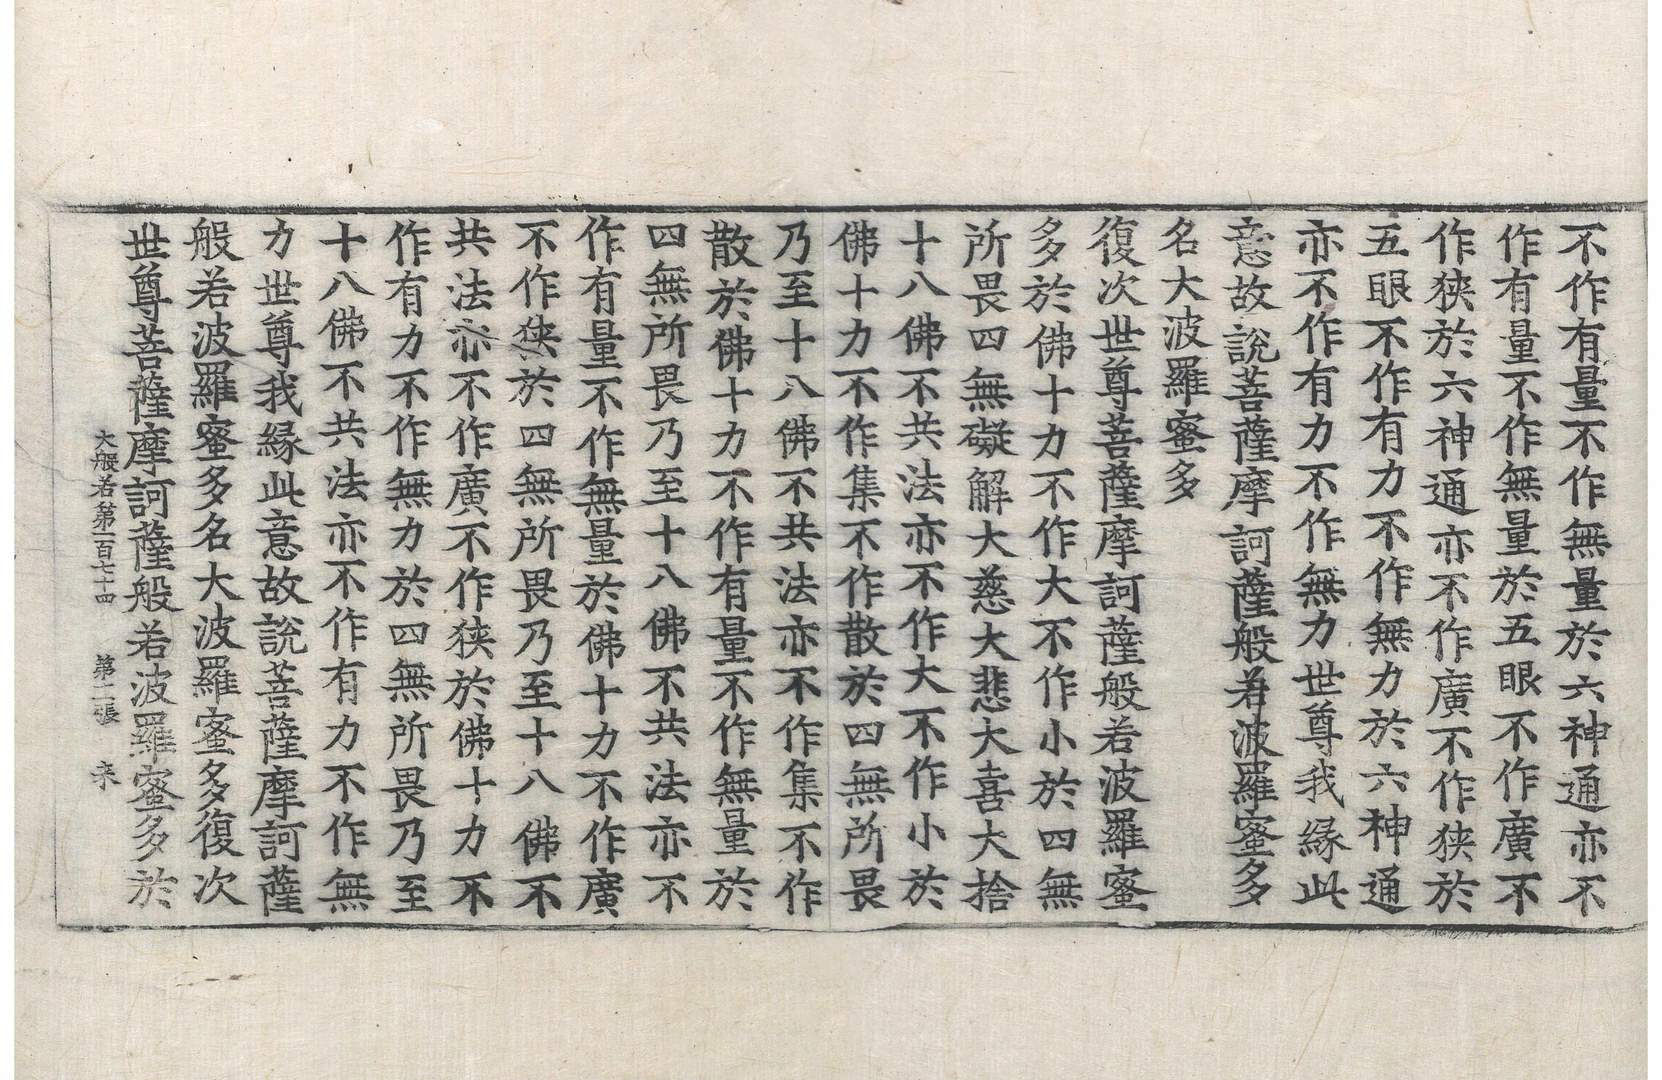 不作有量不作無量於六神通亦不
作有量不作無量於五眼不作廣不
作狭於六神通亦不作廣不作狭於
五眼不作有力不作無力於六神通
亦不作有力不作無力世尊我緣此
意故說菩薩摩訶薩般若波羅蜜多
名大波羅蜜多
復次世尊菩薩摩訶薩般若波羅蜜
多於佛十力不作大不作小於四無
所畏四無礙解大慈大悲大喜大捨
十八佛不共法亦不作大不作小於
佛十力不作集不作散於四無所畏
乃至十八佛不共法亦不作集不作
散於佛十力不作有量不作無量於
四無所畏乃至十八佛不共法亦不
作有量不作無量於佛十力不作廣
不作狭於四無所畏乃至十八佛不
共法亦不作廣不作狭於佛十力不
作有力不作無力於四無所畏乃至
十八佛不共法亦不作有力不作無
力世尊我緣此意故說菩薩摩訶薩
般若波羅蜜多名大波羅蜜多復次
世尊菩薩摩訶薩般若波羅蜜多於
大般若第一百七十四 第二張 来